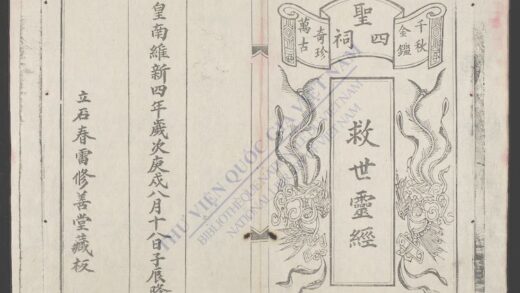 千秋
金鑑
四聖祠
奇珍
萬古
救世靈經
皇南維新四年歲次庚戌八月十八日子辰降
立石春雷修善堂藏板
THƯ VIỆN QUỐC GIA VIỆT NAM